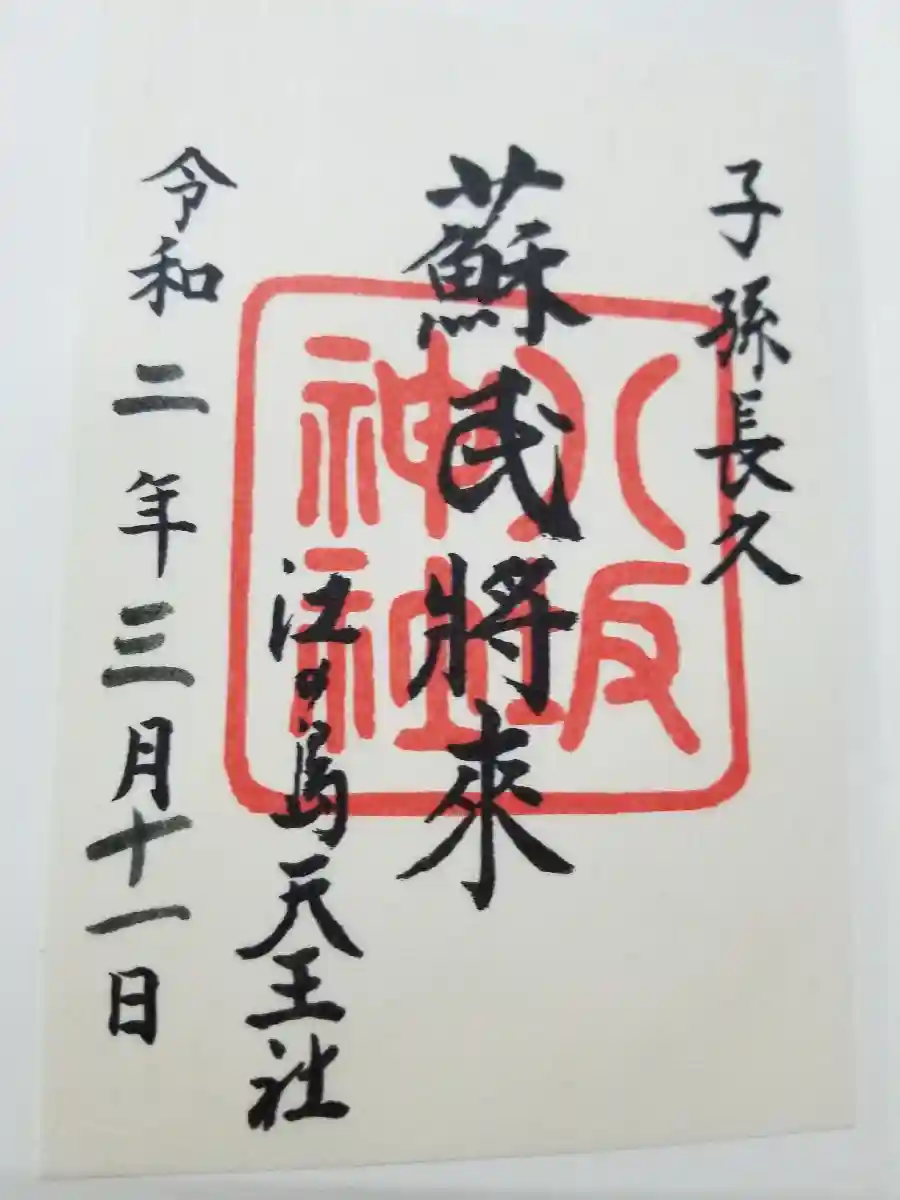 子孫長久
蘇民將來
江の島天王社
令和二年三月十一日
八坂
神社